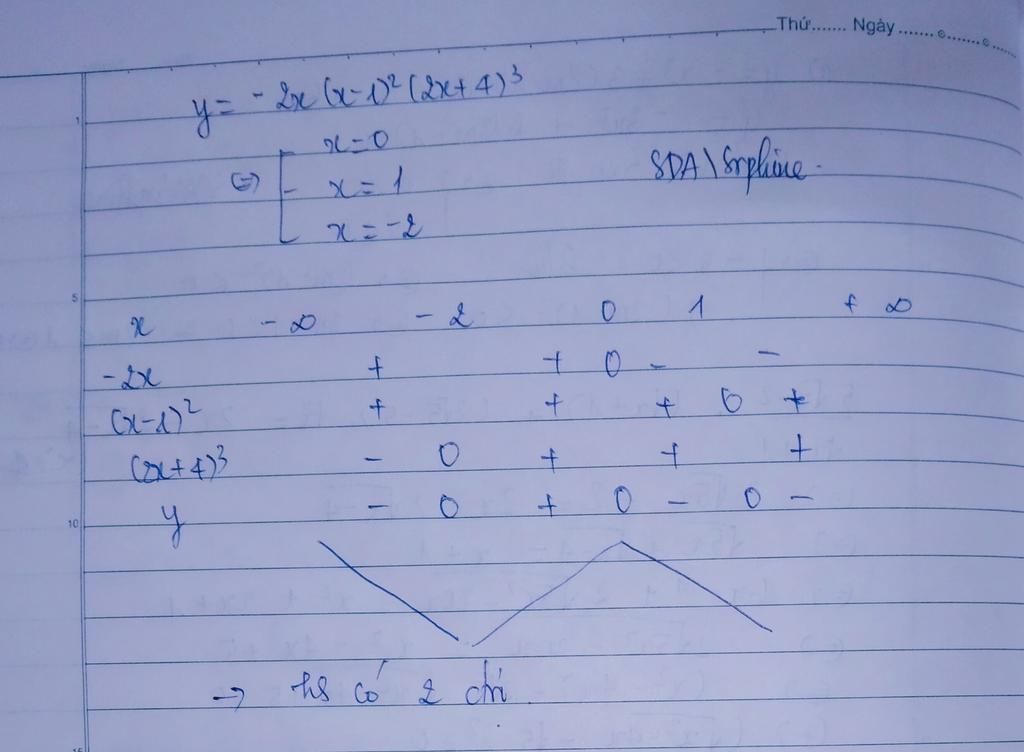 Thứ....... Ngày.......
y = - 2x (x-1)² (2x+4)³
x=0
(=) x= 1
x=-2
SDA\Srphine.
x -∞ -2 0 1 +∞
-2x + + 0 - -
(x-1)² + + + 0 +
(2x+4)³ - 0 + + +
y - 0 + 0 - 0 -
→ hs có 2
5
10